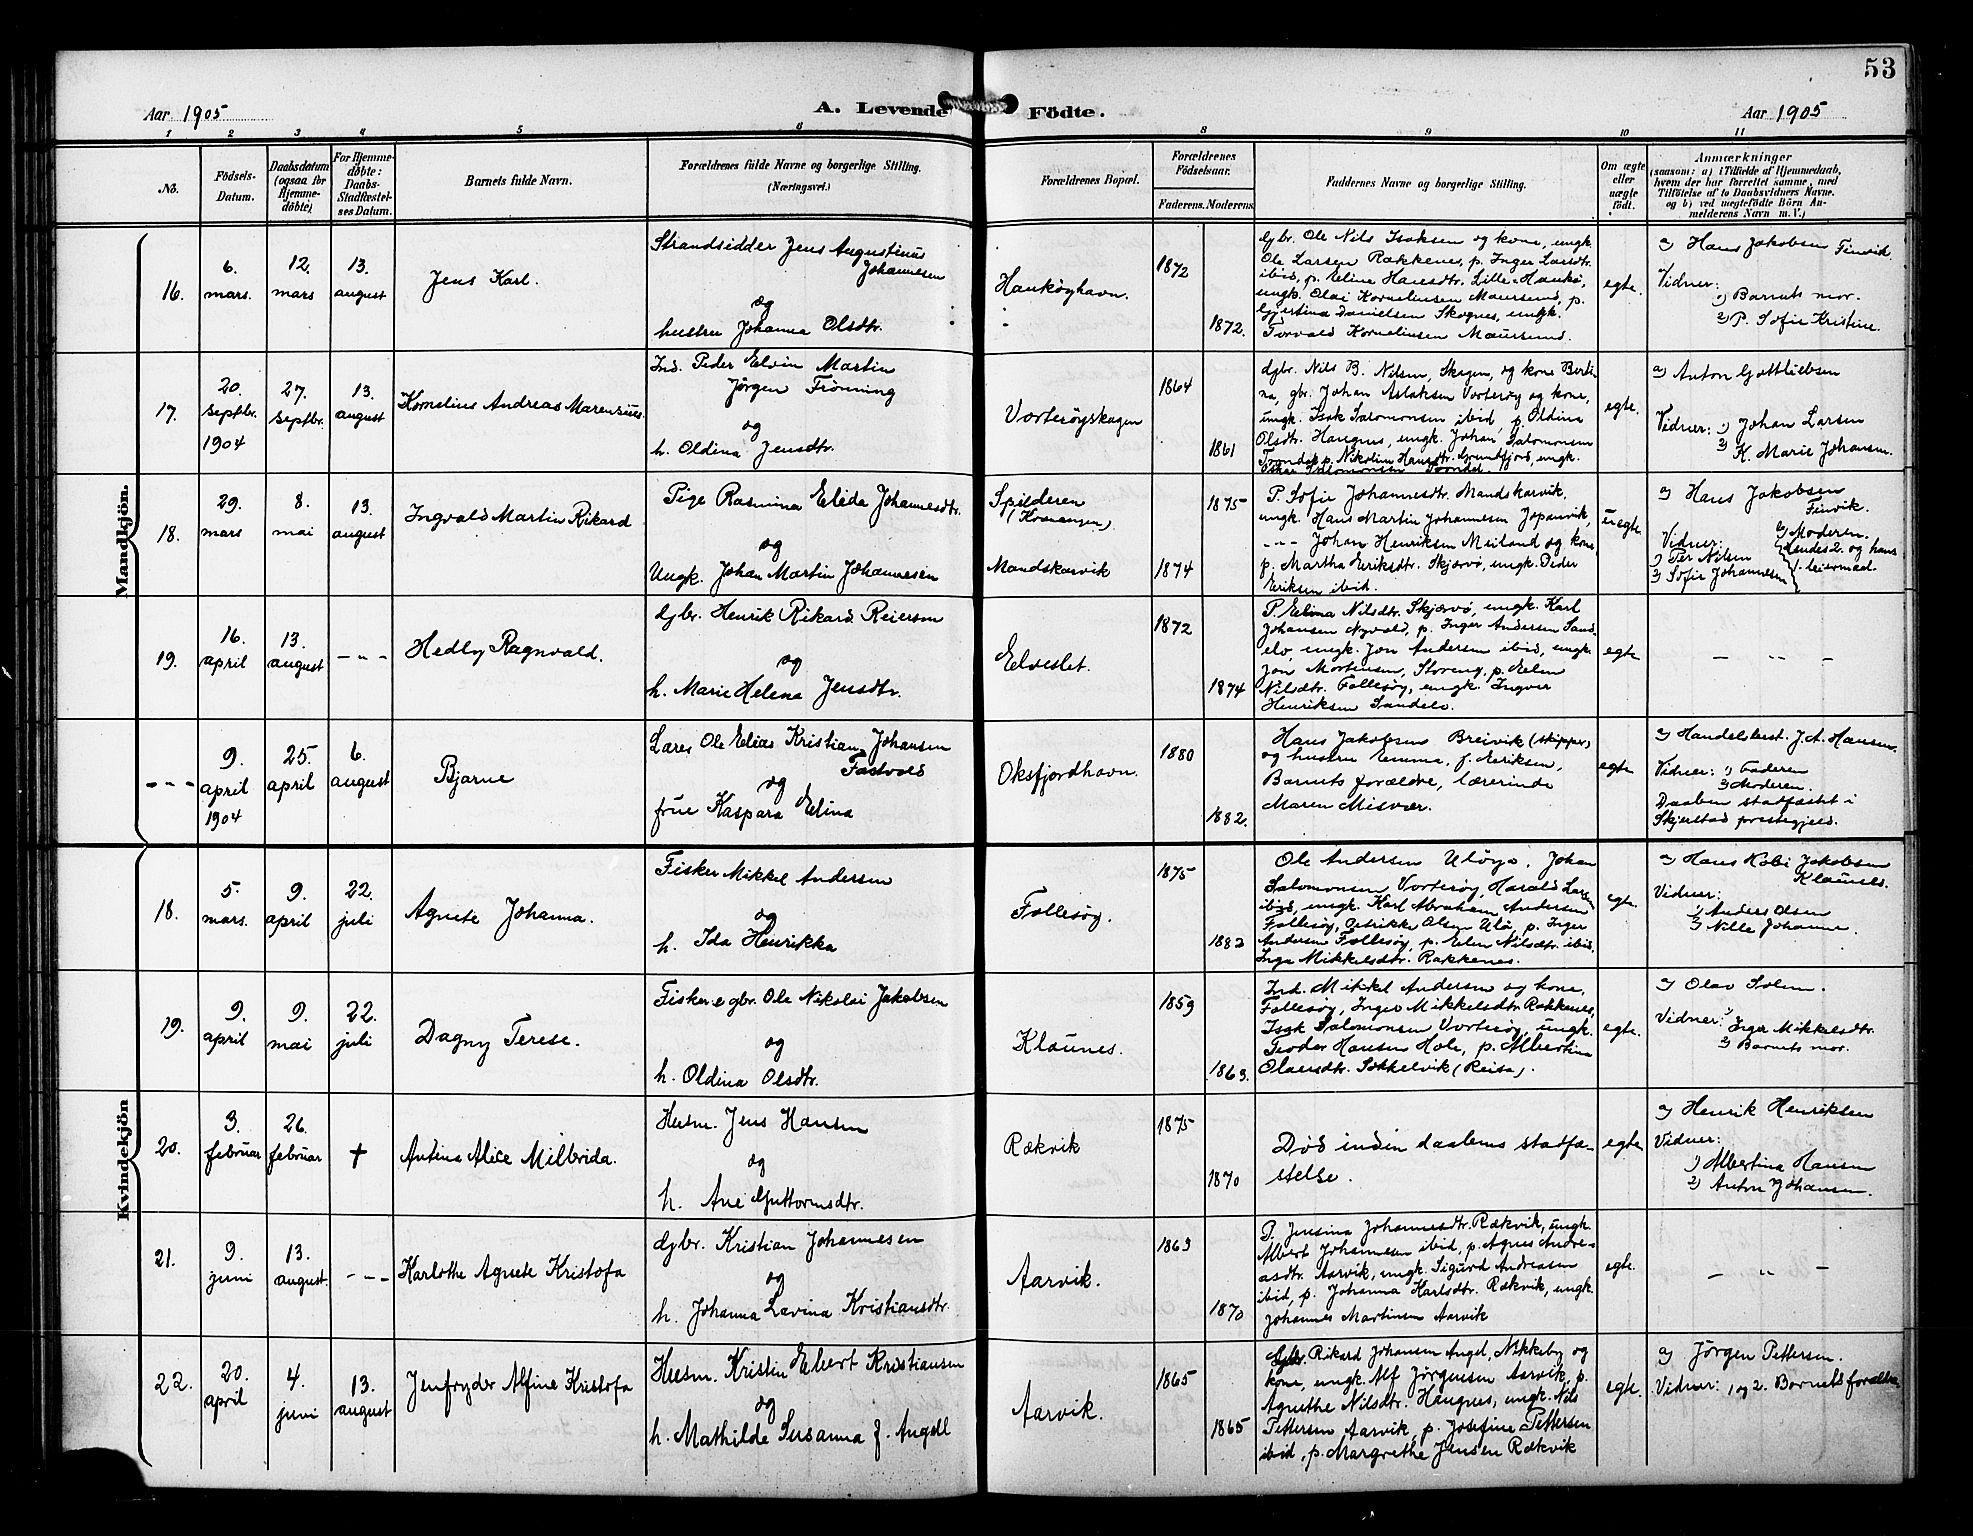 53
Aar 1905
A. Levende Födte.
Aar 1905
1 2 3 4 5 6 8 9 10 11
No.
Födsels-
Datum.
Daabsdatum
(ogsaa for
Hjemme-
döbte)
For Hjemme-
döbte:
Daabs-
Stadfæstel-
ses Datum.
Barnets fulde Navn.
Forældrenes fulde Navne og borgerlige Stilling.
(Næringsvei.)
Forældrenes Bopæl.
Forældrenes
Födselsaar.
Faderens. Moderens.
Faddernes Navne og borgerlige Stilling.
Om ægte
eller
uægte
födt.
Anmærkninger
(saasom: a) i Tilfælde af Hjemmedaab,
hvem der har forrettet samme, med
Tilföielse af to Daabsvidners Navne.
og b) ved uægtefödte Börn An-
melderens Navn m. V.)
Mandkjön.
16.
6.
mars.
12.
mars
13.
august
Jens Karl.
Strandsidder Jens Augustinus
Johannesen
og
hustru Johanna Olsdtr.
Haukøyhavn.
1872
1872.
Gbr. Ole Nils Isaksen og kone, ungk.
Ole Larsen Rakkenes, p. Inger Larsdtr.
ibid, p. Eline Hansdtr. Lille-Haukø,
ungk. Olai Kornelinsen Maursund, p.
Gjertina Danielsen Skognes, ungk.
Torvald Kornelinsen Maursund.
egte.
a) Hans Jakobsen Finvid.
Vidner:
1) Barnets mor.
2) P. Sofie Kristine.
17.
20.
septbr.
1904
27.
septbr.
13.
august
Kornelius Andreas Marensius.
Ind. Peder Elvin Martin
Jørgen Frönning
og
h. Oldina Jensdtr.
Vorterøyskagen
1864
1861
dgbr. Nils B. Nilsen, Skagen, og kone Berti-
na, gbr. Johan Aslaksen Vorterøy og kone,
ungk. Isak Salomonsen ibid, p. Oldina
Olsdtr. Haugnes, ungk. Johan Salomonsen
Trondek p. Nikoline Hansdtr. Grundfjord, ungk.
Oskar Salomonsen
egte.
a) Anton Gottliebsen
Vidner: 1) Johan Larsen
2) K. Marie Johansen.
18.
29.
mars
8.
mai
13.
august
Ingvald Martin Rikard
Pige Rasmina Elida Johannesdtr.
og
Ungk. Johan Martin Johannesen
Spilderen
(Kvænangen)
Mandskarvik
1875
1874
P. Sofie Johannesdtr. Mandskarvik,
ungk. Hans Martin Johannesen Jopanvik,
-"- Johan Henriksen Meiland og kone,
p. Martha Eriksdtr. Skjervø, ungk. Peder
Eriksen ibid.
uegte.
a) Hans Jakobsen
Finvik.
Vidner:
1) Per Nilsen
2) Sofie Johannesen
b) Moderen.
Hendes 2. og hans
1. leiermaal.
19.
16.
april
13.
august
-"-
Hedly Ragnvald.
dgbr. Henrik Rikard Reiersen
og
h. Marie Helena Jensdtr.
Elveslet.
1872
1874
P. Elina Nilsdtr. Skjærvø, ungk. Karl
Johansen Nyvold, p. Inger Andersen Sand-
elv, ungk. Jon Andersen ibid, ungk.
Jon Mortensen, Storeng, p. Elen
Nilsdtr. Follesøy, ungk. Ingver
Henriksen Sandelv.
egte
- " -
---
9.
april
1904
25.
april
6.
august
Bjarne
Lærer Ole Elias Kristian Johansen
Fastvold
og
frue Kaspara Elina
Oksfjordhavn.
1880
1882.
Hans Jakobsens Breivik (skipper)
og hustru Emma, f. Eriksen,
Barnets forældre, lærerinde
Maren Misvær.
egte
a) Handelsbest. J. A. Hansen.
Vidner: 1) Faderen
2) Moderen.
Daaben stadfæstet i
Skjerstad prestegjeld.
Kvindekjön
18.
5.
mars.
9.
april
22.
juli
Agnete Johanna.
Fisker Mikkel Andersen
og
h. Ida Henrikka
Follesøy.
1875
1882
Ole Andersen Uløya, Johan
Salomonsen Vorterøy, Harald Larsen
ibid, ungk. Karl Abraham Andersen
Follesøy, Petrikke Olsen Ulø, p. Inger
Andersen Follesøy, p. Elen Nilsdtr. ibid,
Inga Mikkelsdtr. Rakkenes.
egte.
a) Hans Kobi Jakobsen
Klaunes.
Vidner:
1) Anders Olsen
2) Nille Johanne.
19.
9.
april
9.
mai
22.
juli
Dagny Terese.
Fisker e gbr. Ole Nikolai Jakobsen
og
h. Oldina Olsdtr.
Klaunes.
1859
1863.
Ind. Mikkel Andersen og kone,
Follesøy, Inger Mikkelsdtr. Rakkenes,
Isak Salomonsen Vorterøy, ungk.
Teodor Hansen Hole, p. Albertina
Olausdtr. Sokkelvik (Reisa).
egte.
a) Olav Solem.
Vidner: 1) Inger Mikkelsdtr.
2) Barnets mor.
20.
3.
februar
26.
februar
†
Antina Alice Milbrida.
Husm. Jens Hansen
og
h. Ane Guttormsdtr.
Rækvik
1875
1870
Død inden daabens stadfæ-
stelse.
egte
a) Henrik Henriksen
Vidner:
1) Albertina Hansen
2) Anton Johansen.
21.
9.
juni
13.
august.
---
Karlothe Agnete Kristofa
dgbr. Kristian Johannesen
og
h. Johanna Lavina Kristiansdtr.
Aarvik.
1863
1870
P. Jensina Johannesdtr. Rækvik, ungk.
Albert Johannesen ibid, p. Agnes Andre-
asdtr. Aarvik, ungk. Sigurd Andreasen
ibid, p. Johanna Karlsdtr. Rækvik, ungk.
Johannes Martinsen Aarvik
egte.
- " -
22.
20.
april
4.
juni
13.
august
Jenfryder Alfine Kristofa
Husm. Kristin Ebert Kristiansen
og
h. Mathilde Susanna f. Angell
Aarvik.
1865
1865
Gbr. Rikard Johansen Angel, Nikkeby og
kone, ungk. Alf Jörgensen Aarvik, p.
Agnethe Nilsdtr. Haugnes, ungk. Nils
Pettersen Aarvik, p. Josefine Pettersen
ibid, p. Margrethe Jensen Rækvik
egte.
a) Jörgen Pettersen.
Vidner: 1 og 2. Barnets foræld